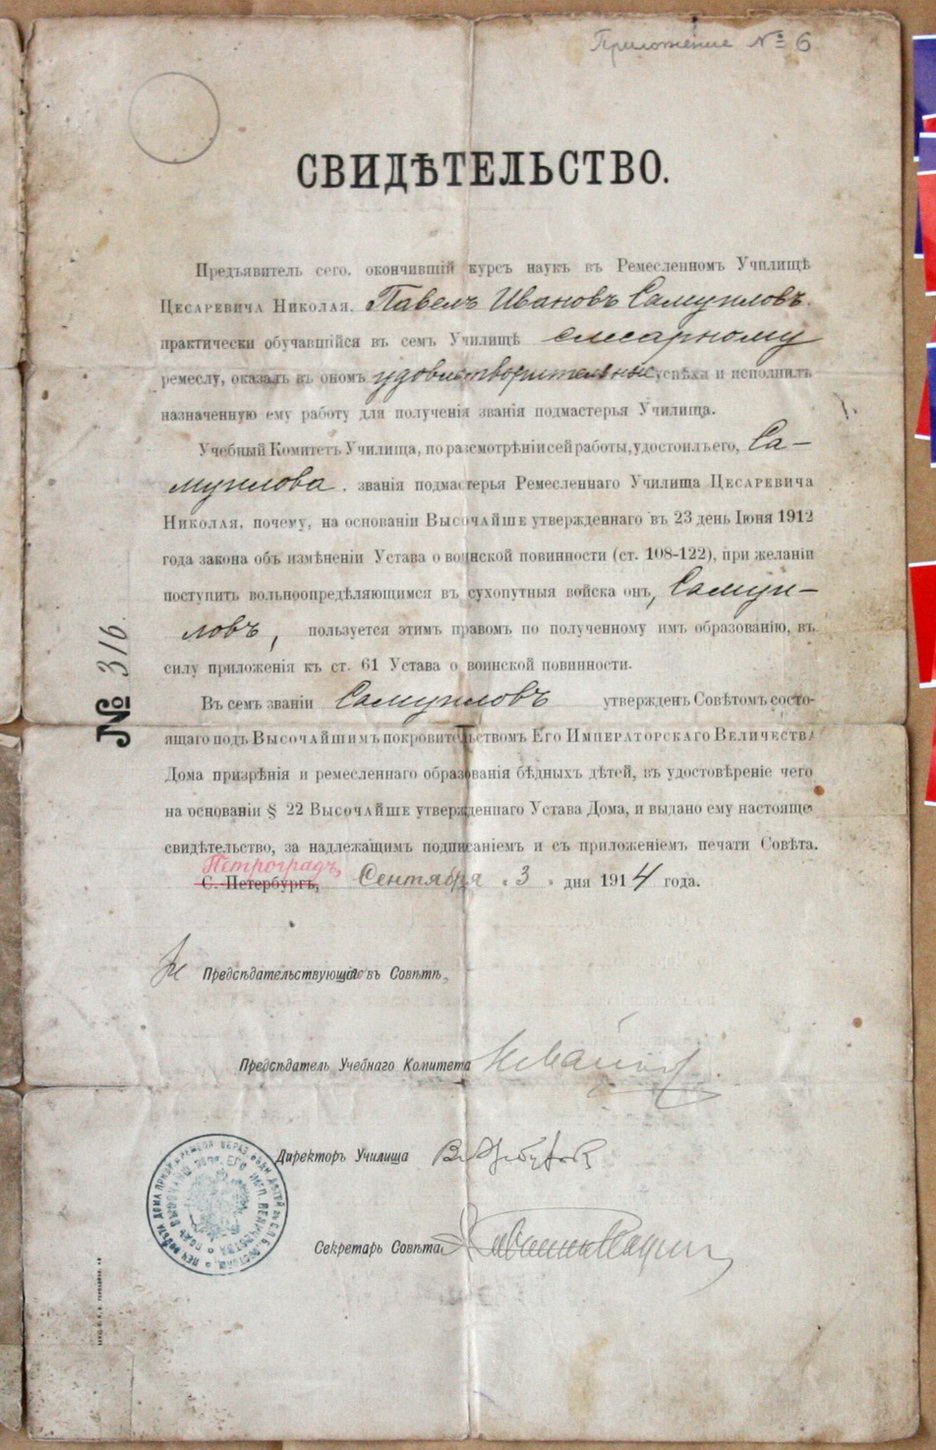 Приложение № 6
СВИДѢТЕЛЬСТВО.
Предъявитель сего, окончившій курсъ наукъ въ Ремесленномъ Училищѣ
ЦЕСАРЕВИЧА НИКОЛАЯ, Павелъ Ивановъ Самуиловъ,
практически обучавшійся въ семъ Училищѣ слесарному
ремеслу, оказалъ въ ономъ удовлетворительные успѣхи и исполнилъ
назначенную ему работу для полученія званія подмастерья Училища.
Учебный Комитетъ Училища, по разсмотрѣніи сей работы, удостоилъ его, Са-
муилова, званія подмастерья Ремесленнаго Училища ЦЕСАРЕВИЧА
НИКОЛАЯ, почему, на основаніи ВЫСОЧАЙШЕ утвержденнаго въ 23 день Іюня 1912
года закона объ измѣненіи Устава о воинской повинности (ст. 108-122), при желаніи
поступить вольноопредѣляющимся въ сухопутныя войска онъ, Самуи-
ловъ, пользуется этимъ правомъ по полученному имъ образованію, въ
силу приложенія къ ст. 61 Устава о воинской повинности.
№ 316.
Въ семъ званіи Самуиловъ утвержденъ Совѣтомъ состо-
ящаго подъ ВЫСОЧАЙШИМЪ покровительствомъ ЕГО ИМПЕРАТОРСКАГО ВЕЛИЧЕСТВА
Дома призрѣнія и ремесленнаго образованія бѣдныхъ дѣтей, въ удостовѣреніе чего
на основаніи § 22 ВЫСОЧАЙШЕ утвержденнаго Устава Дома, и выдано ему настоящее
свидѣтельство, за надлежащимъ подписаніемъ и съ приложеніемъ печати Совѣта.
Петроградъ
С.-Петербургъ, Сентября „ 3 " дня 1914 года.
Предсѣдательствующій въ Совѣтѣ,
Предсѣдатель Учебнаго Комитета
Директоръ Училища
Секретарь Совѣта